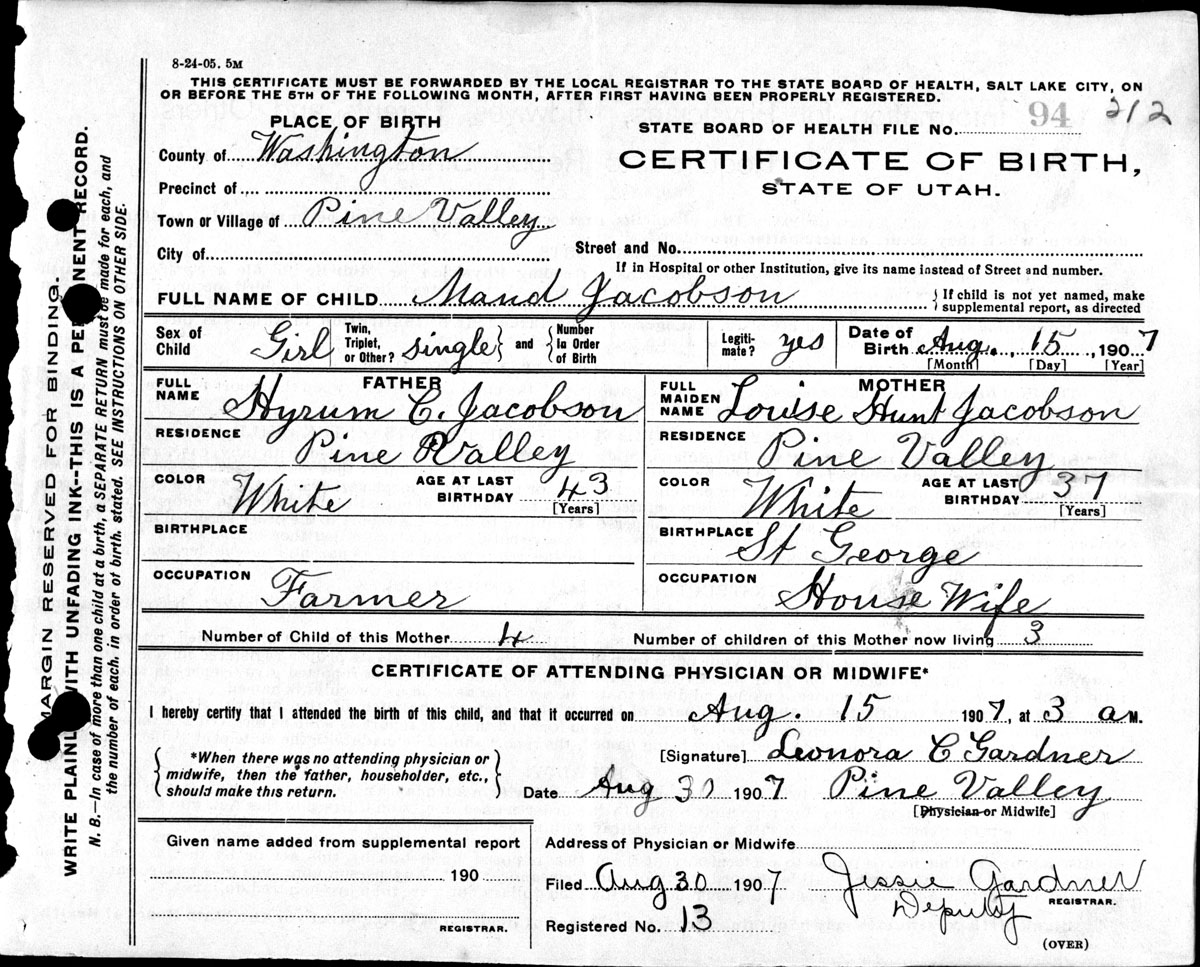 8-24-05. 5M
THIS CERTIFICATE MUST BE FORWARDED BY THE LOCAL REGISTRAR TO THE STATE BOARD OF HEALTH, SALT LAKE CITY, ON
OR BEFORE THE 5TH OF THE FOLLOWING MONTH, AFTER FIRST HAVING BEEN PROPERLY REGISTERED.
212
PLACE OF BIRTH
STATE BOARD OF HEALTH FILE No. 94
County of Washington
CERTIFICATE OF BIRTH,
STATE OF UTAH.
Precinct of
Town or Village of Pine Valley
City of
Street and No.
If in Hospital or other Institution, give its name instead of Street and number.
FULL NAME OF CHILD Maud Jacobson
{ If child is not yet named, make
supplemental report, as directed
Sex of Child Girl
Twin, Triplet, or Other? single } and { Number In Order of Birth
Legiti-mate? yes
Date of Birth Aug. 15, 1907
[Month] [Day] [Year]
FATHER
FULL NAME Hyrum C. Jacobson
MOTHER
FULL MAIDEN NAME Louise Hunt Jacobson
RESIDENCE Pine Valley
RESIDENCE Pine Valley
COLOR White
AGE AT LAST BIRTHDAY 43
[Years]
COLOR White
AGE AT LAST BIRTHDAY 37
[Years]
BIRTHPLACE
BIRTHPLACE St George
OCCUPATION Farmer
OCCUPATION House Wife
Number of Child of this Mother 4
Number of children of this Mother now living 3
CERTIFICATE OF ATTENDING PHYSICIAN OR MIDWIFE*
I hereby certify that I attended the birth of this child, and that it occurred on Aug. 15 1907, at 3 a M.
{ *When there was no attending physician or
midwife, then the father, householder, etc.,
should make this return. }
[Signature] Leonora C Gardner
Date Aug 30 1907 Pine Valley
[Physician or Midwife]
Given name added from supplemental report
190
REGISTRAR.
Address of Physician or Midwife
Filed Aug 30 1907 Jessie Gardner
REGISTRAR.
Deputy
Registered No. 13
(OVER)
MARGIN RESERVED FOR BINDING.
WRITE PLAINLY WITH UNFADING INK--THIS IS A PERMANENT RECORD.
N. B.—In case of more than one child at a birth, a SEPARATE RETURN must be made for each, and
the number of each, in order of birth, stated. SEE INSTRUCTIONS ON OTHER SIDE.